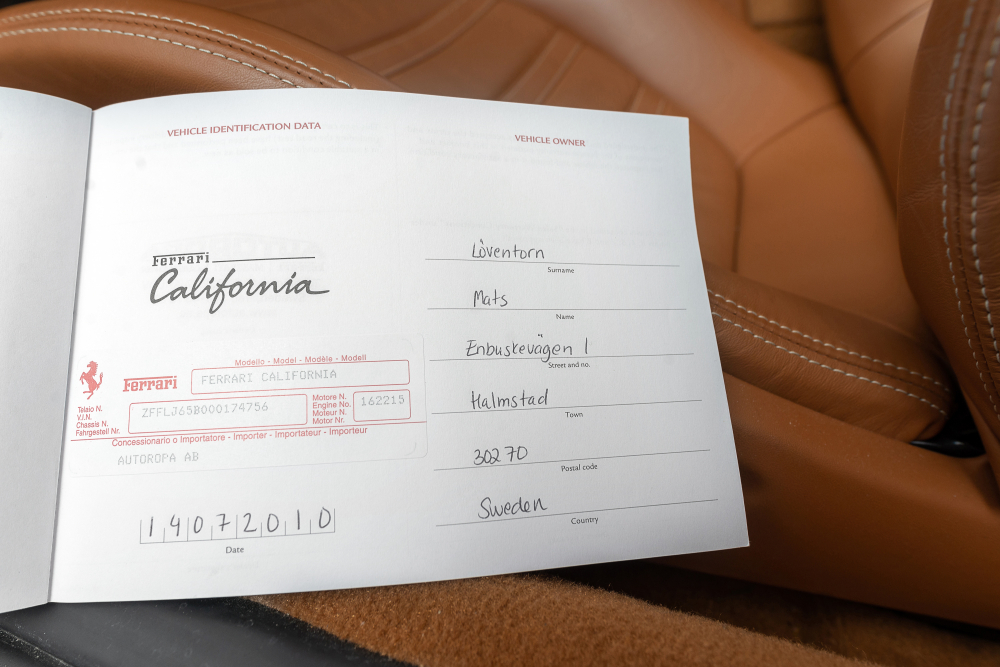 VEHICLE IDENTIFICATION DATA
Ferrari
California
Modello - Model - Modèle - Modell
Ferrari
FERRARI CALIFORNIA
Telaio N.
V.I.N.
Chassis N.
Fahrgestell Nr.
ZFFLJ65B000174756
Motore N.
Engine No.
Moteur N.
Motor Nr.
162215
Concessionario o Importatore - Importer - Importateur - Importeur
AUTOROPA AB
14072010
Date
VEHICLE OWNER
Löventorn
Surname
Mats
Name
Enbuskevägen 1
Street and no.
Halmstad
Town
302 70
Postal code
Sweden
Country